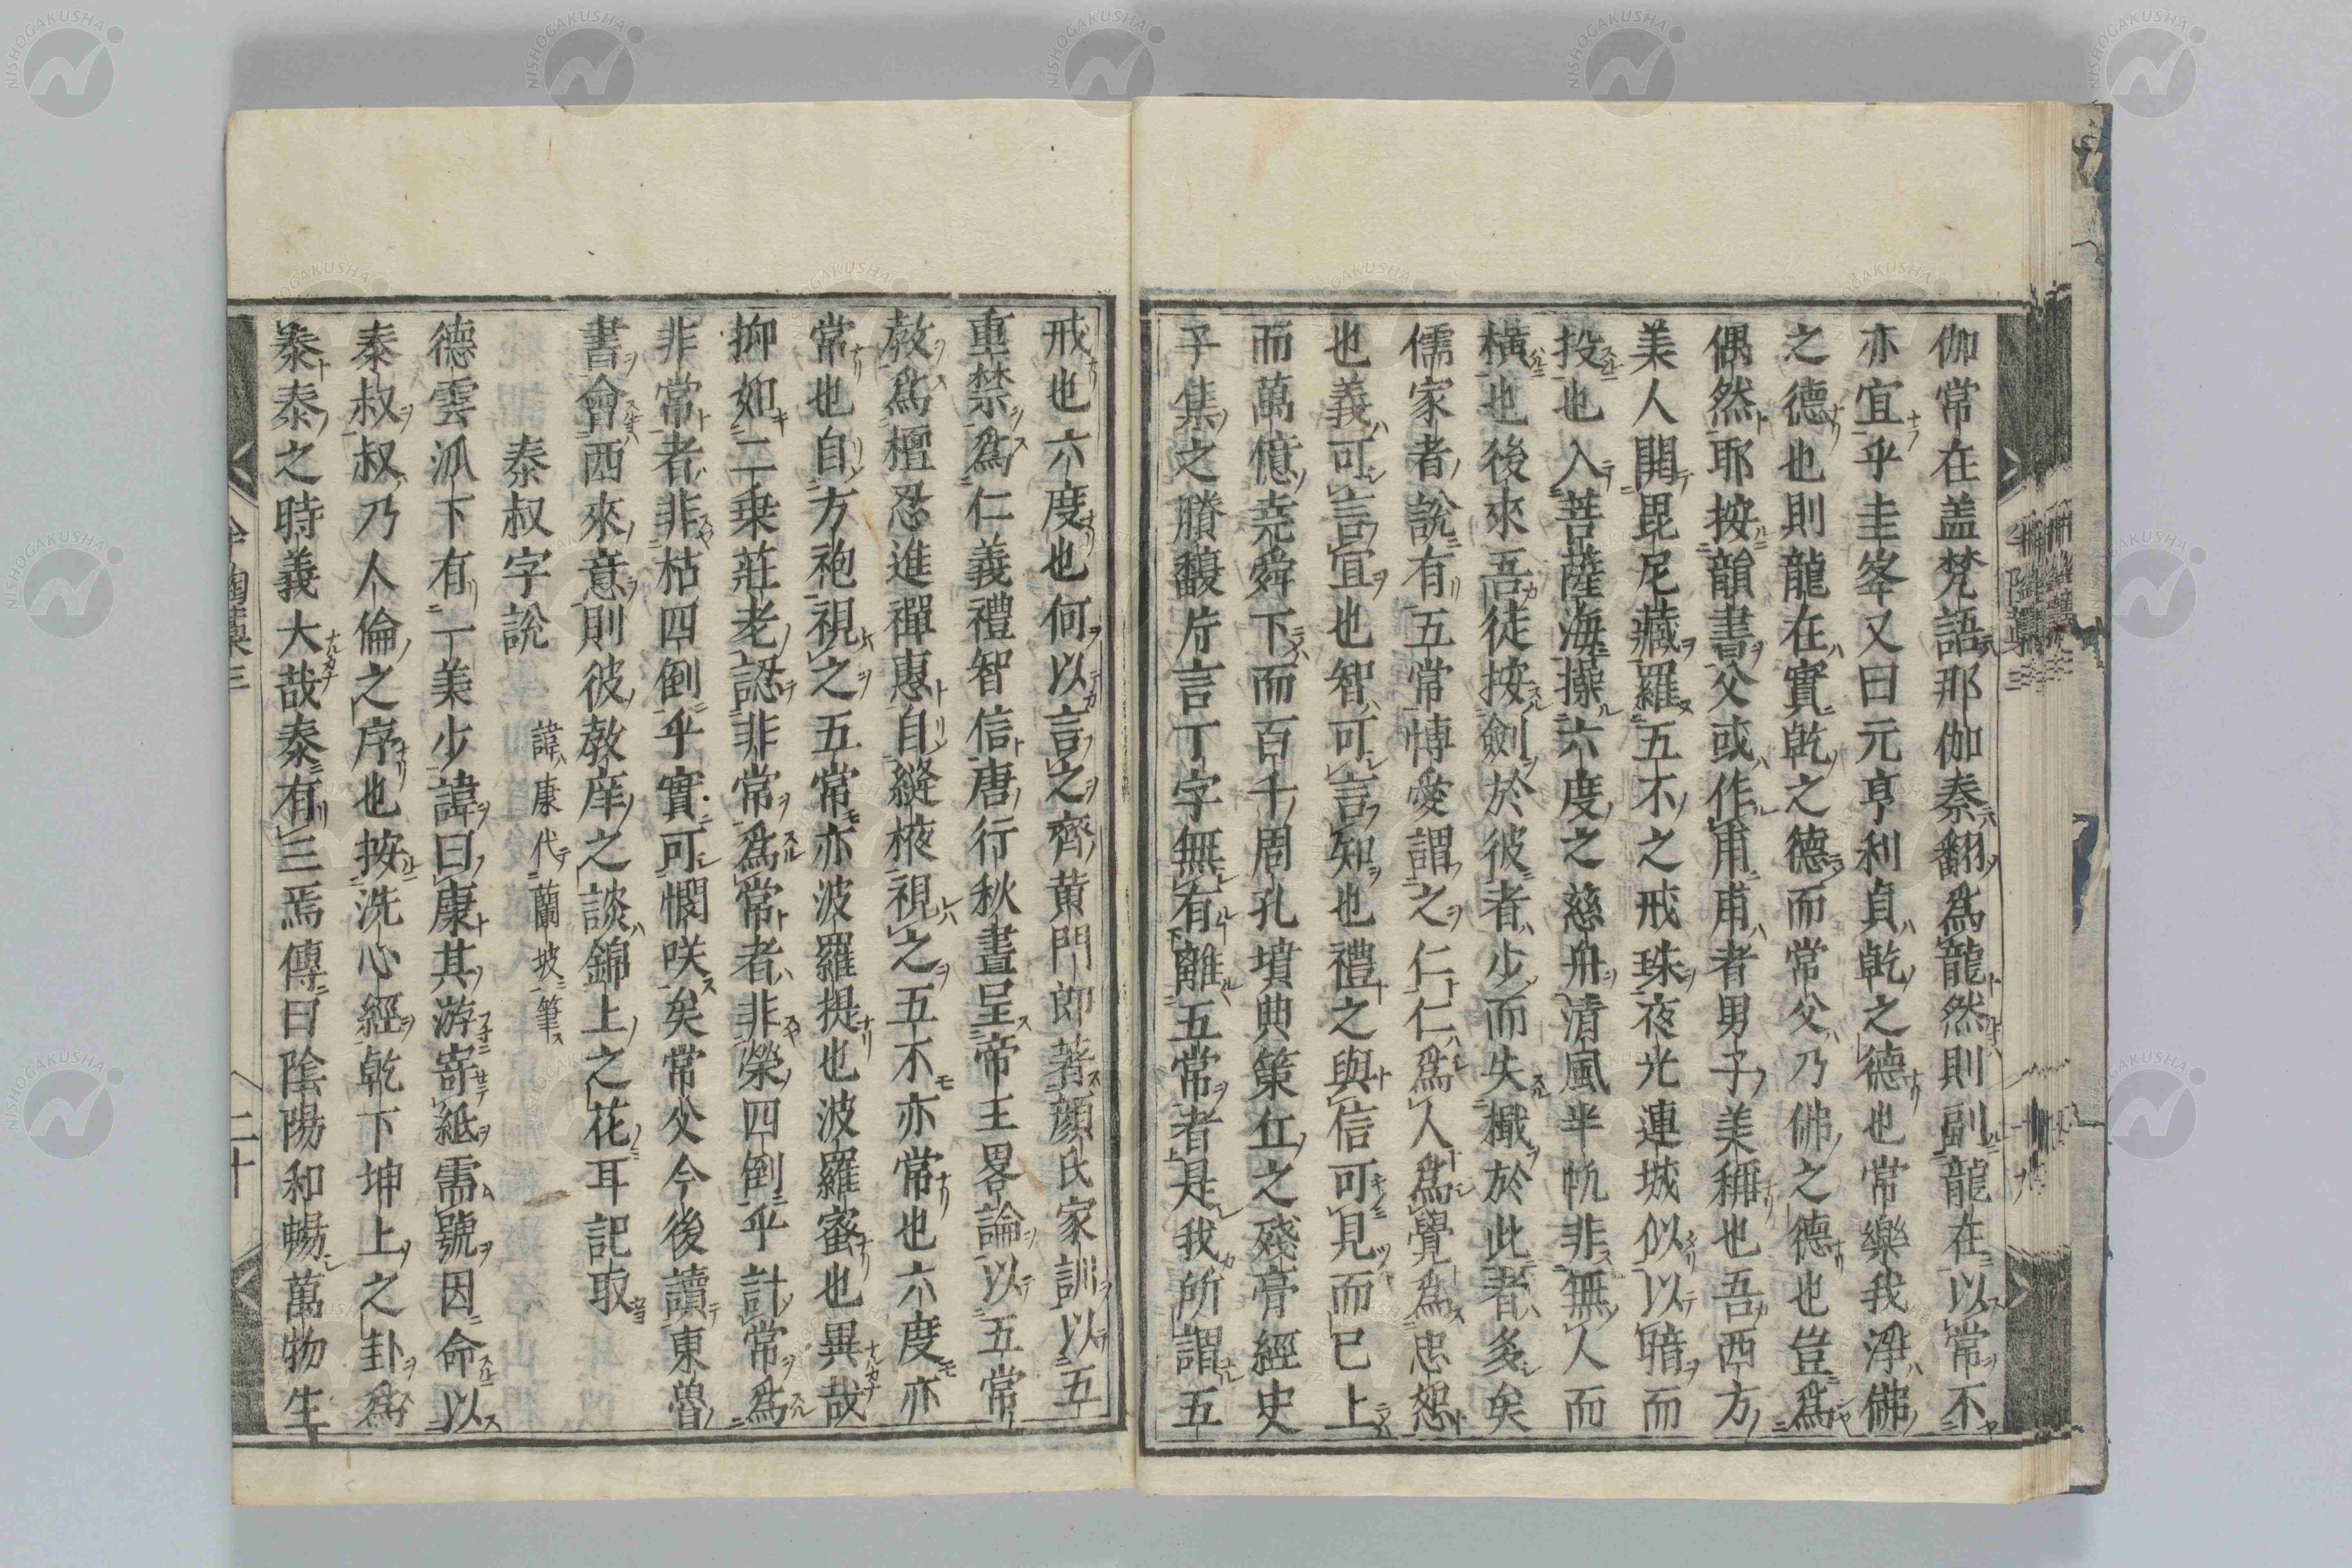 伽常在盖梵語那伽秦翻爲龍然則副龍在以常不
亦宜乎圭峯又曰元亨利貞乾之德也常樂我淨佛
之德也則龍在實乾之德而常父乃佛之德也豈爲
偶然耶按韻書父或作甫甫者男子美稱也吾西方
美人開毘尼藏羅五不之戒珠夜光連城似以暗而
投也入菩薩海操六度之慈舟清風半帆非無人而
橫也後來吾徒按劍於彼者少而失檝於此者多矣
儒家者說有五常博愛謂之仁仁爲人爲覺爲忠恕
也義可言宜也智可言知也禮之與信可見而已上
而萬億堯舜下而百千周孔墳典策丘之殘膏經史
子集之賸馥片言丁字無有離五常者是我所謂五
戒也六度也何以言之齊黄門郎著顔氏家訓以五
重禁爲仁義禮智信唐行秋晝呈帝王畧論以五常
教爲檀忍進禪惠自縫掖視之五不亦常也六度亦
常也自方袍視之五常亦波羅提也波羅蜜也異哉
抑如二乗莊老認非常爲常者非榮四倒乎計常爲
非常者非枯四倒乎實可憫咲矣常父今後讀東魯
書會西來意則彼教庠之談錦上之花耳記取
泰叔字說 諱康代蘭坡筆
德雲派下有一美少諱曰康其游寄紙需號因命以
泰叔叔乃人倫之序也按洗心經乾下坤上之卦爲
泰泰之時義大哉泰有三焉傳曰陰陽和暢萬物生
二十